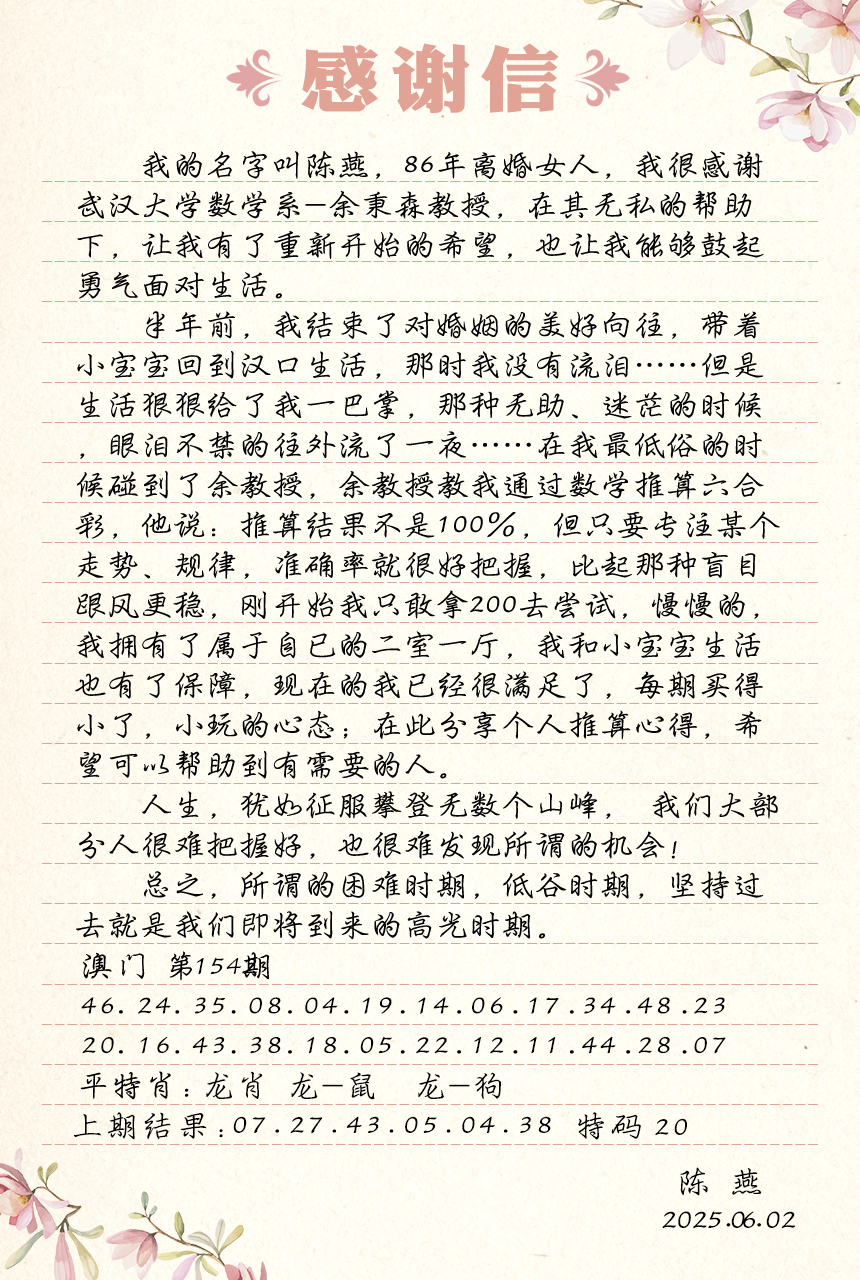 感谢信
我的名字叫陈燕，86年离婚女人，我很感谢
武汉大学数学系—余秉森教授，在其无私的帮助
下，让我有了重新开始的希望，也让我能够鼓起
勇气面对生活。
半年前，我结束了对婚姻的美好向往，带着
小宝宝回到汉口生活，那时我没有流泪……但是
生活狠狠给了我一巴掌，那种无助、迷茫的时候
，眼泪不禁的往外流了一夜……在我最低俗的时
候碰到了余教授，余教授教我通过数学推算六合
彩，他说：推算结果不是100%，但只要专注某个
走势、规律，准确率就很好把握，比起那种盲目
跟风更稳，刚开始我只敢拿200去尝试，慢慢的，
我拥有了属于自已的二室一厅，我和小宝宝生活
也有了保障，现在的我已经很满足了，每期买得
小了，小玩的心态；在此分享个人推算心得，希
望可以帮助到有需要的人。
人生，犹如征服攀登无数个山峰， 我们大部
分人很难把握好，也很难发现所谓的机会！
总之，所谓的困难时期，低谷时期，坚持过
去就是我们即将到来的高光时期。
澳门 第154期
46.24.35.08.04.19.14.06.17.34.48.23
20.16.43.38.18.05.22.12.11.44.28.07
平特肖：龙肖 龙—鼠 龙—狗
上期结果：07.27.43.05.04.38 特码 20
陈 燕
2025.06.02